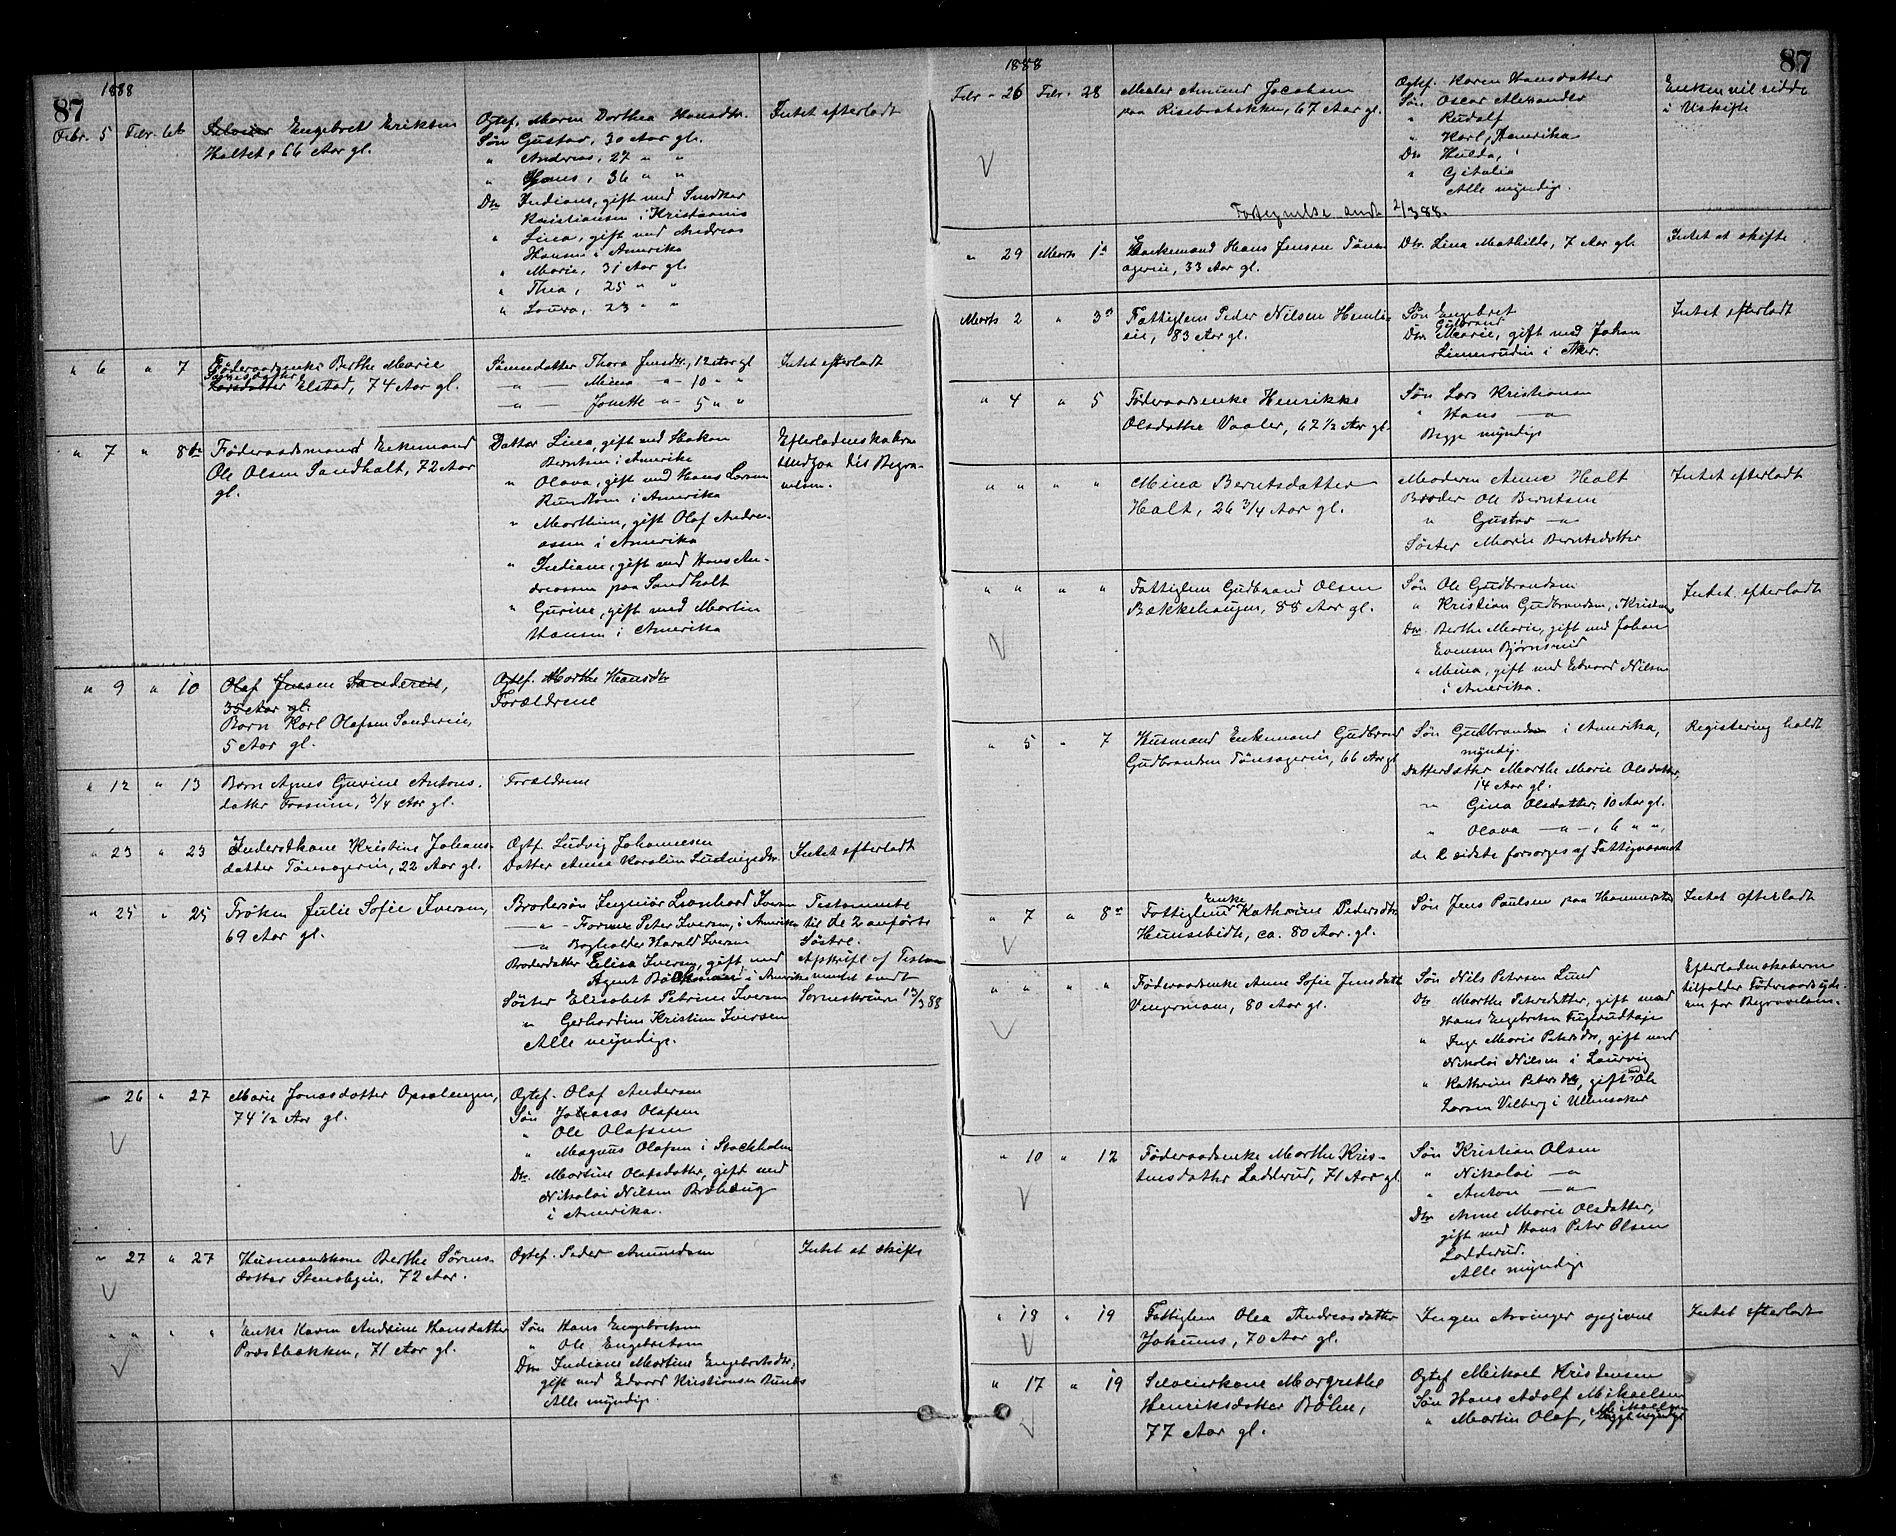 87
1888
Febr. 5 Febr. 6te Selveier Engebret Eriksen
Holtet, 66 Aar gl.
Ogtef. Maren Dorthea Hansdtr.
Søn Gustav, 30 Aar gl.
" Andreas, 27 " "
" Hans, 36 " "
Dtr Indiane, gift med Snedker
Kristiansen i Kristiania
" Lina, gift med Andreas
Hansen i Amerika
" Marie, 31 Aar gl.
" Thea, 25 " "
" Laura, 23 " "
Intet efterladt
" 6 " 7 Føderaadsenke Berthe Marie
Larsdatter Elstad, 74 Aar gl.
Sønnedatter Thora Jensdtr., 12 Aar gl
—"— Mina —"— 10 " "
—"— Jonette —"— 5 " "
Intet efterladt
" 7 " 8de Føderaadsmand Enkemand
Ole Olsen Sandholt, 72 Aar
gl.
Datter Lina, gift med Hakon
Berntsen i Amerika
" Olava, gift med Hans Larsen
i Amerika
" Marthine, gift Olaf Andre-
assen i Amerika
" Indiane, gift med Hans An-
dreassen paa Sandholt
" Gurine, gift med Martin
Hansen i Amerika
Efterladenskaberne
medgaa til Begra-
velsen.
" 9 " 10 Olaf Jensen Sandereie,
35 Aar gl.
Barn Karl Olafsen Sandereie,
5 Aar gl.
Ogtef. Marthe Hansdtr
Forældrene
" 12 " 13 Barn Agnes Gurine Antons-
datter Fossum, 3/4 Aar gl.
Forældrene
" 23 " 23 Inderstkone Kristine Johans-
datter Tønsagerie, 22 Aar gl.
Ogtf. Ludvig Johannesen
Datter Anna Karoline Ludvigsdtr.
Intet efterladt
" 25 " 25 Frøken Julie Sofie Iversen,
69 Aar gl.
Brodersøn Ingeniør Leonhard Iversen
—"— Farmer Peter Iversen, i Amerika
—"— Bogholder Harald Iversen
Broderdatter Elisa Iversen, gift med
Agent i Amerika
Søster Elisabet Petrine Iversen
" Gerhardine Kristine Iversen
Alle myndige.
Testamente
til de 2 anførte
Søstre.
Afskrift af Testa-
mentet sendt
Sorenskriveren 13/3 88
" 26 " 27 Marie Jonasdatter Opsalengen,
74 1/2 Aar gl.
Ogtef. Olaf Andersen
Søn Johannes Olafsen
" Ole Olafsen
" Magnus Olafsen i Stockholm
Dtr. Martine Olafsdatter, gift med
Nikolai Nilsen Brohaug
i Amerika.
" 27 " 27 Husmandskone Berthe Sørens-
datter Stensbyeie, 72 Aar.
Ogtef. Peder Amundsen
Intet at skifte
" " " " Enke Karen Andrine Hansdatter
Præstbakken, 71 Aar gl.
Søn Hans Engebretsen
" Ole Engebretsen
Dtr Indiane Martine Engebretsdtr,
gift med Edvard Kristiansen
Alle myndige.
87
1888
Febr. 26 Febr. 28 Maler Amund Jacobsen
paa Risebrobakken, 67 Aar gl.
Ogtef. Karen Hansdatter
Søn Oscar Alexander
" Rudolf
" Karl, i Amerika
Dtr Hulda,
" Gitalia
Alle myndige.
Enken vil sidde
i Uskifte
Fortegnelse sendt 2/3 88.
" 29 Marts 1ste Enkemand Hans Jensen Tøns-
agereie, 33 Aar gl.
Dtr. Lina Mathilde, 7 Aar gl.
Intet at skifte
Marts 2 " 3die Fattiglem Peder Nilsen Hemli-
eie, 83 Aar gl.
Søn Engebret
Gulbrand
Dtr. Marie, gift med Johan
Linnerudin i Aker.
Intet efterladt
" 4 " 5 Føderaadsenke Henrikke
Olsdatter Vaaler, 62 1/2 Aar gl.
Søn Lars Kristiansen
" Hans —"—
Begge myndige
" " " " Mina Berntsdatter
Holt, 26 3/4 Aar gl.
Moderen Anne Holt
Broder Ole Berntsen
" Gustav —"—
Søster Marie Berntsdatter
Intet efterladt
" " " " Fattiglem Gudbrand Olsen
Bækkehaugen, 88 Aar gl.
Søn Ole Gudbrandsen
" Kristian Gudbrandsen, i Kristiania
Dtr. Berthe Marie, gift med Johan
Evensen Bjørnsrud
" Mina, gift med Edvard Nilsen
i Amerika.
Intet efterladt
" 5 " 7 Husmand Enkemand Gudbrand
Gudbrandsen Tønsagereie, 66 Aar gl
Søn Gudbrandsen i Amerika,
myndig.
Datterdatter Marthe Marie Olsdatter,
14 Aar gl.
" Gina Olsdatter, 10 Aar gl.
" Olava —"—, 6 " ".
de 2 sidste forsørges af Fattigvæsenet
Registering holdt
" 7 " 8de Fattiglem Enke Kathrine Pedersdtr
Hunsebidt, ca. 80 Aar. gl.
Søn Jens Paulsen paa Hammerstad
Intet efterladt
" " " " Føderaadsenke Anne Sofie Jensdatter
Vengermoen, 80 Aar gl.
Søn Nils Petersen Lund
Dtr Marthe Petersdatter, gift med
Hans Engebretsen
" Inge Marie Petersdtr, gift med
Nikolai Nilsen i Laurvig
" Kathrine Petersdtr, gift med Ole
Larsen Vilberg i Ullensaker
Efterladenskaberne
tilfalder Føderaadsyde-
ren for Begravelsen.
" 10 " 12 Føderaadsenke Marthe Kris-
tensdatter Ladderud, 71 Aar gl.
Søn Kristian Olsen
" Nikolai —"—
" Anton —"—
Dtr Anne Marie Olsdatter,
gift med Hans Peter Olsen
Ladderud.
Alle myndige
" 18 " 19 Fattiglem Olea Andreasdatter
Jokums, 70 Aar gl.
Ingen Arvinger opgivne
Intet efterladt
" 17 " 19 Selveierkone Margrethe
Henriksdatter Bøhn,
77 Aar gl.
Ogtef Mikael Kristensen
Søn Hans Adolf Mikaelsen
" Martin Olaf, Mikaelsen
Begge myndige